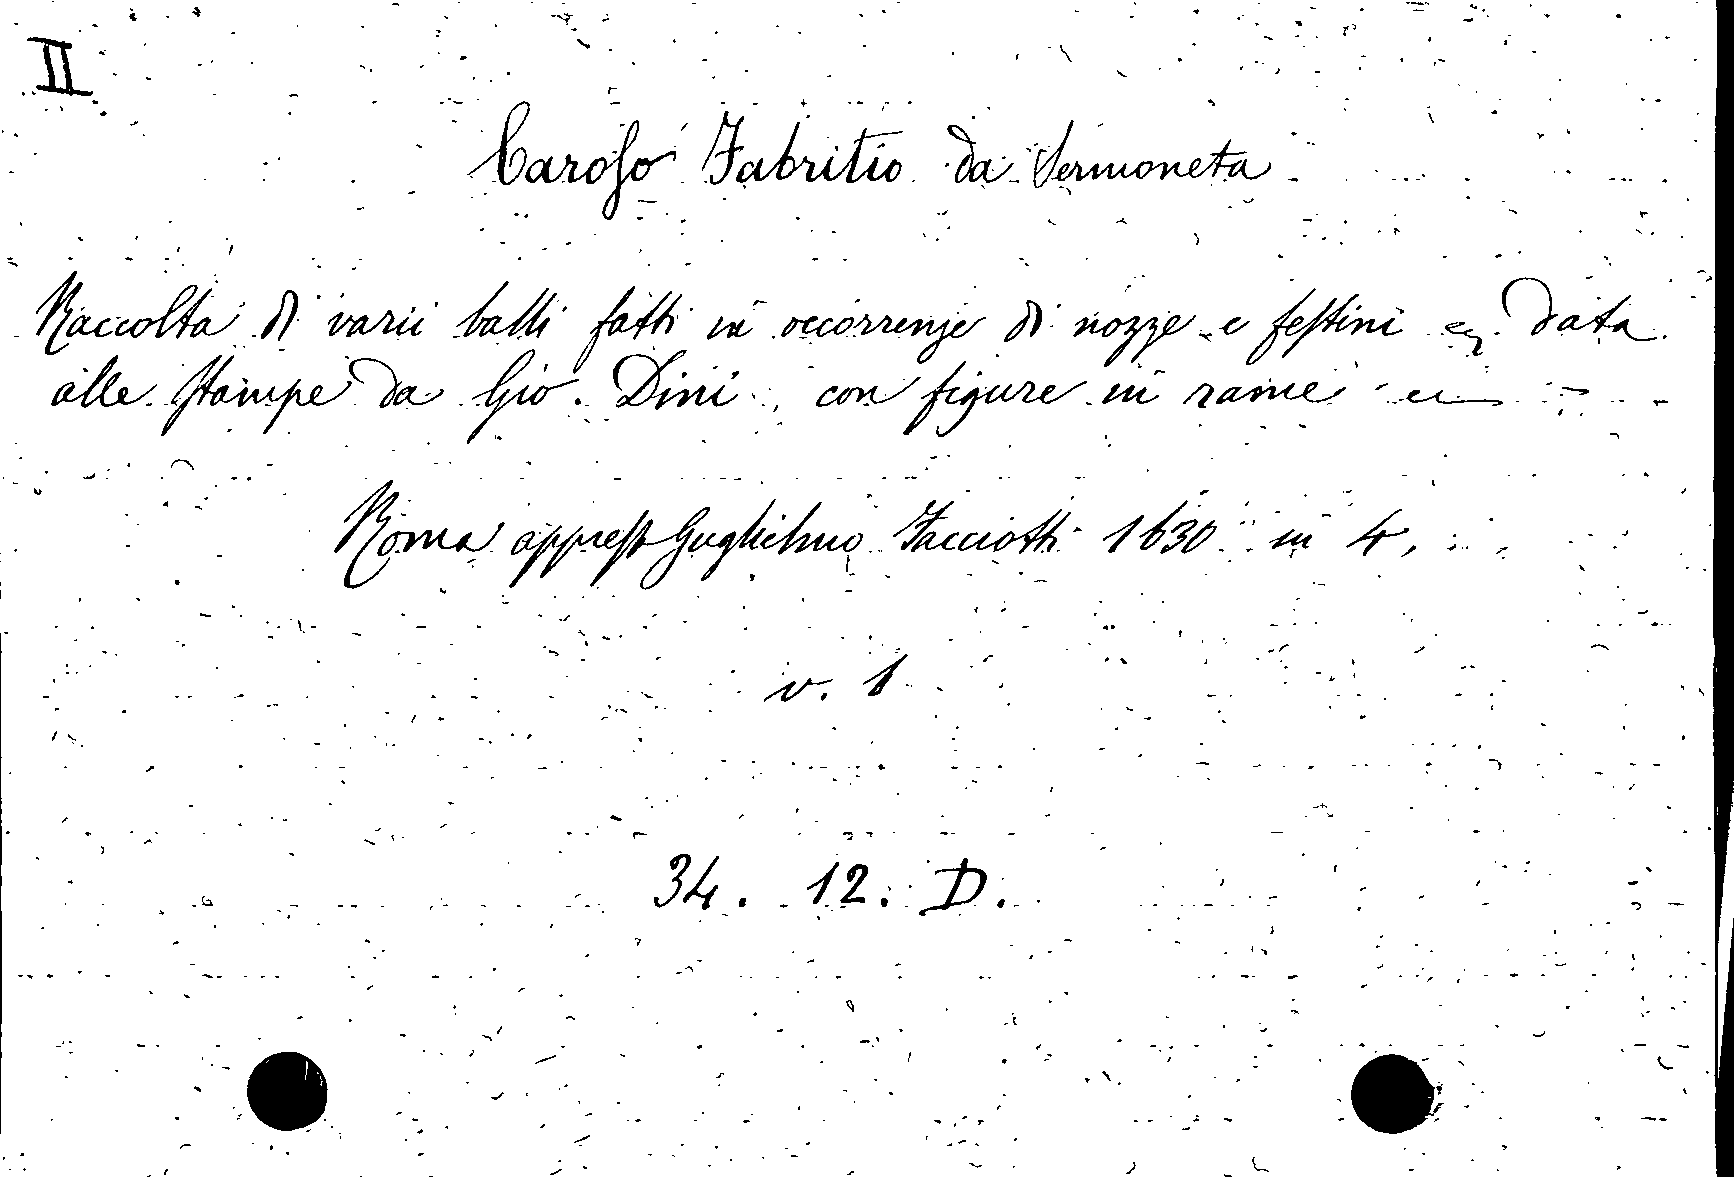 II
Caroso Fabritio da Sermoneta
Raccolta di varii balli fatti in occorrenze di nozze e festini data
alle stampe da Gio. Dini con figure in rame
Roma appresso Guglielmo Facciotti 1630 in 4.
v. 1
34. 12. D.